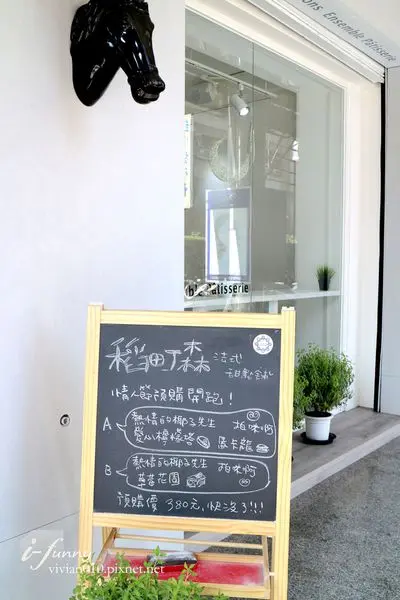 ons Ensemble Pâtisserie
ble Pâtisserie
稻町森 法式
甜點舖
情人節預購開跑！
A 熱情的椰子先生 拍咪啊
愛心檸檬塔 馬卡龍
B 熱情的椰子先生 拍咪啊
草莓花園
預購價 380元，快沒了!!!
i-funny
vivian010.pixnet.net